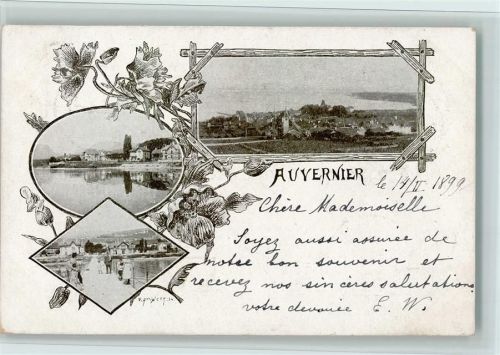 AUVERNIER
le 17/II 1899
Chère Mademoiselle
Soyez aussi assurée de
notre bon souvenir et
recevez nos sincères salutations
votre devouée E. W.